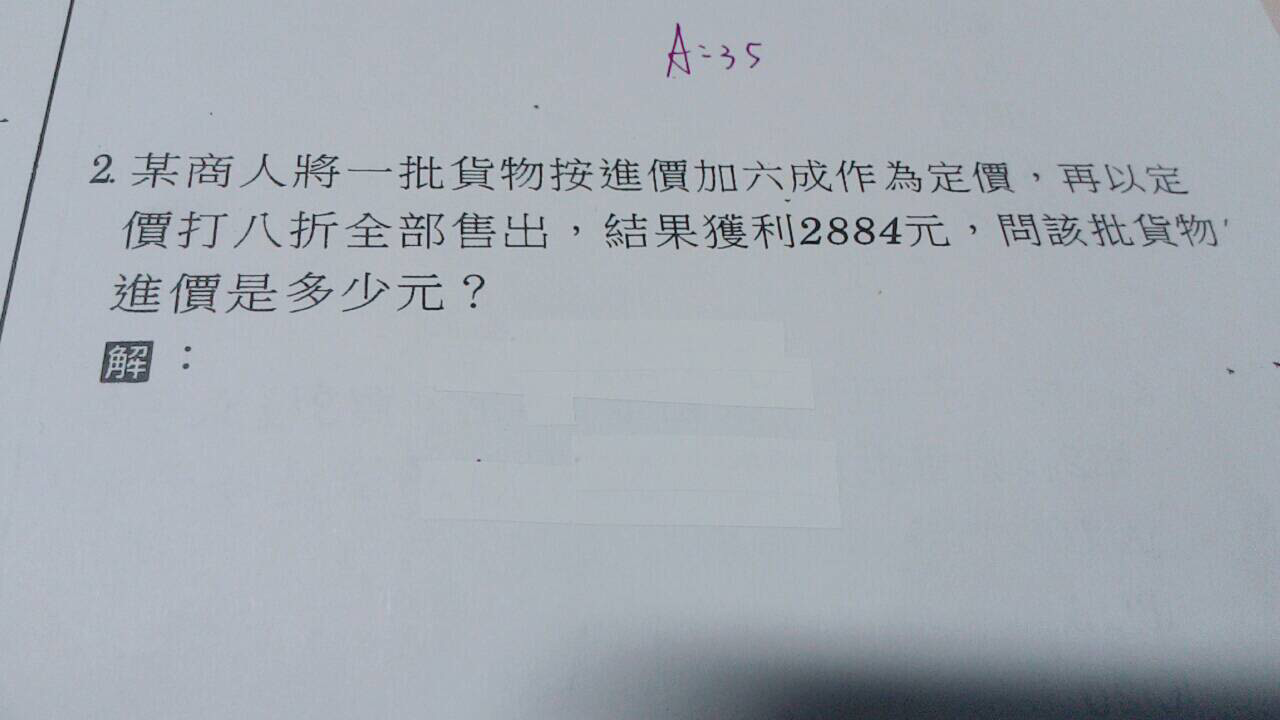 A=35
2. 某商人將一批貨物按進價加六成作為定價，再以定
價打八折全部售出，結果獲利2884元，問該批貨物
進價是多少元？
解：